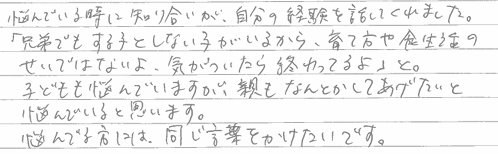 悩んでいる時に知り合いが、自分の経験を話してくれました。
「兄弟でもする子としない子がいるから、育て方や食生活の
せいではないよ、気がついたら終わってるよ」と。
子どもも悩んでいますが、親もなんとかしてあげたいと
悩んでいると思います。
悩んでる方には、同じ言葉をかけたいです。